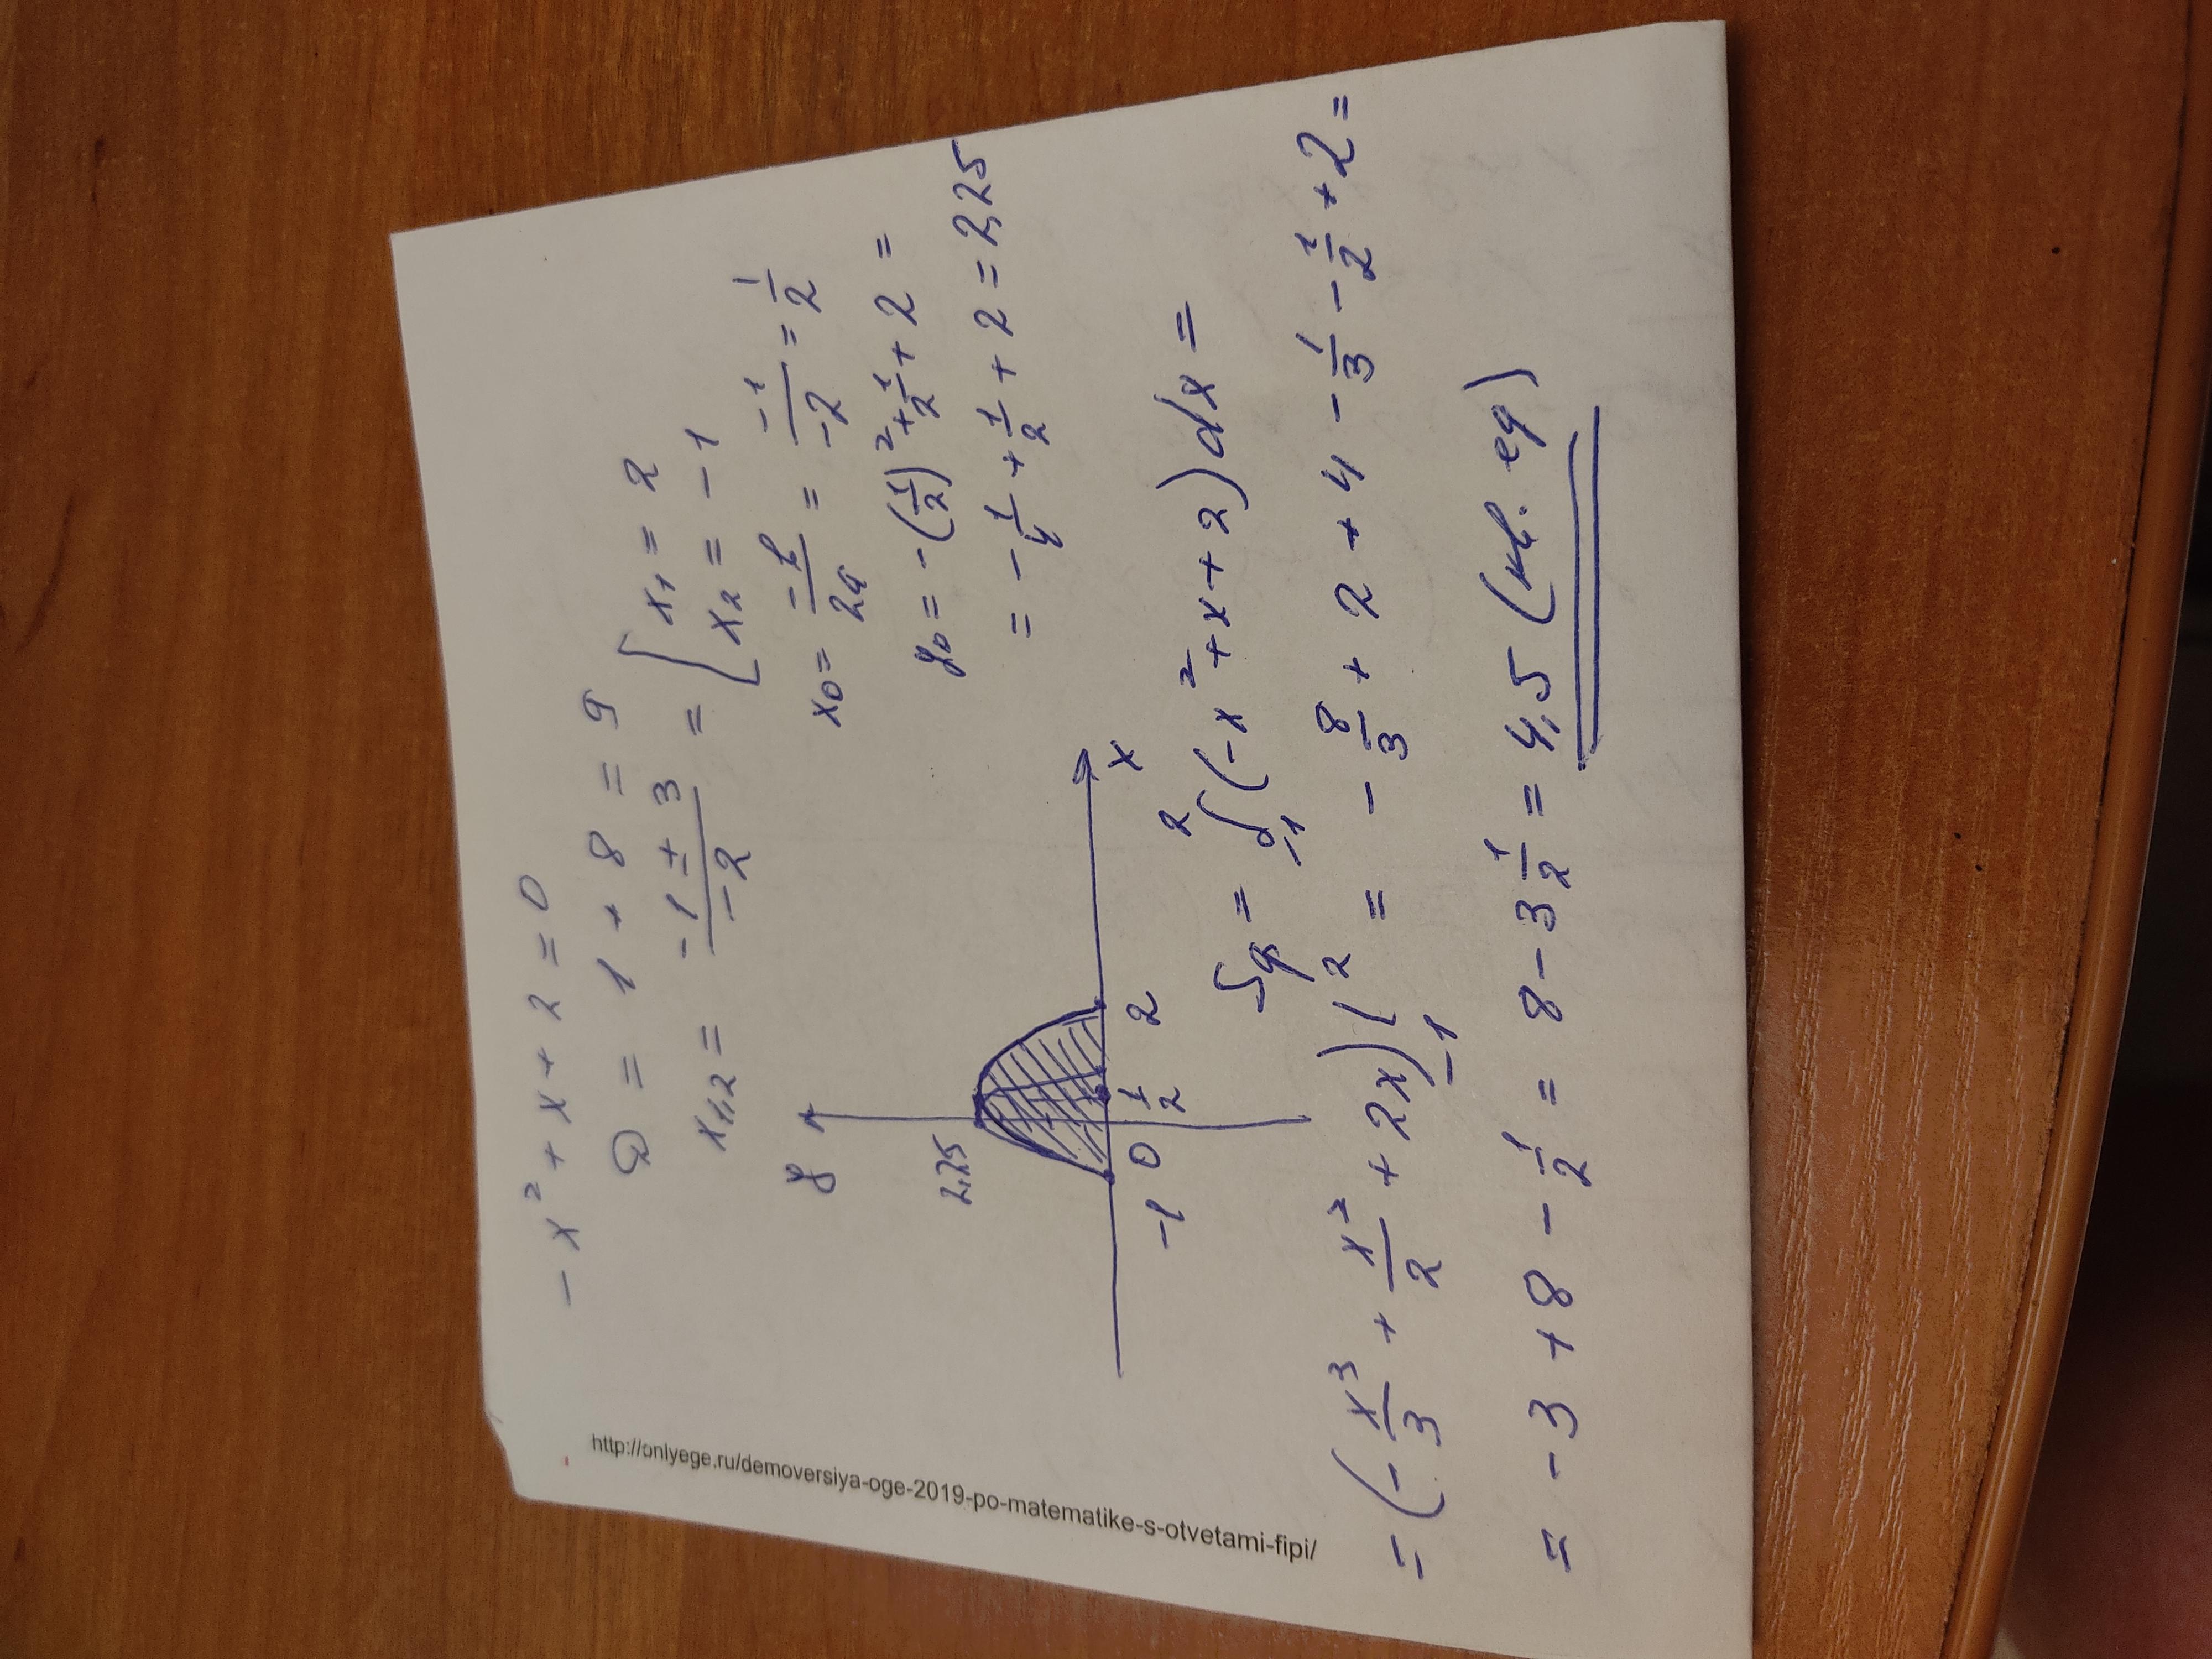 -x² + x + 2 = 0
D = 1 + 8 = 9
x₁,₂ = (-1 ± 3)/(-2) = [ x₁ = 2
x₂ = -1
x₀ = -b/2a = -1/-2 = 1/2
y₀ = -(1/2)² + 1/2 + 2 =
= -1/4 + 1/2 + 2 = 2,25
y
2,25
-1 0 1/2 2 x
Sф = ∫₋₁² (-x² + x + 2)dx =
= (-x³/3 + x²/2 + 2x)|₋₁² = -8/3 + 2 + 4 - 1/3 - 1/2 + 2 =
= -3 + 8 - 1/2 = 8 - 3 1/2 = 4,5 (кв. ед)
http://onlyege.ru/demoversiya-oge-2019-po-matematike-s-otvetami-fipi/